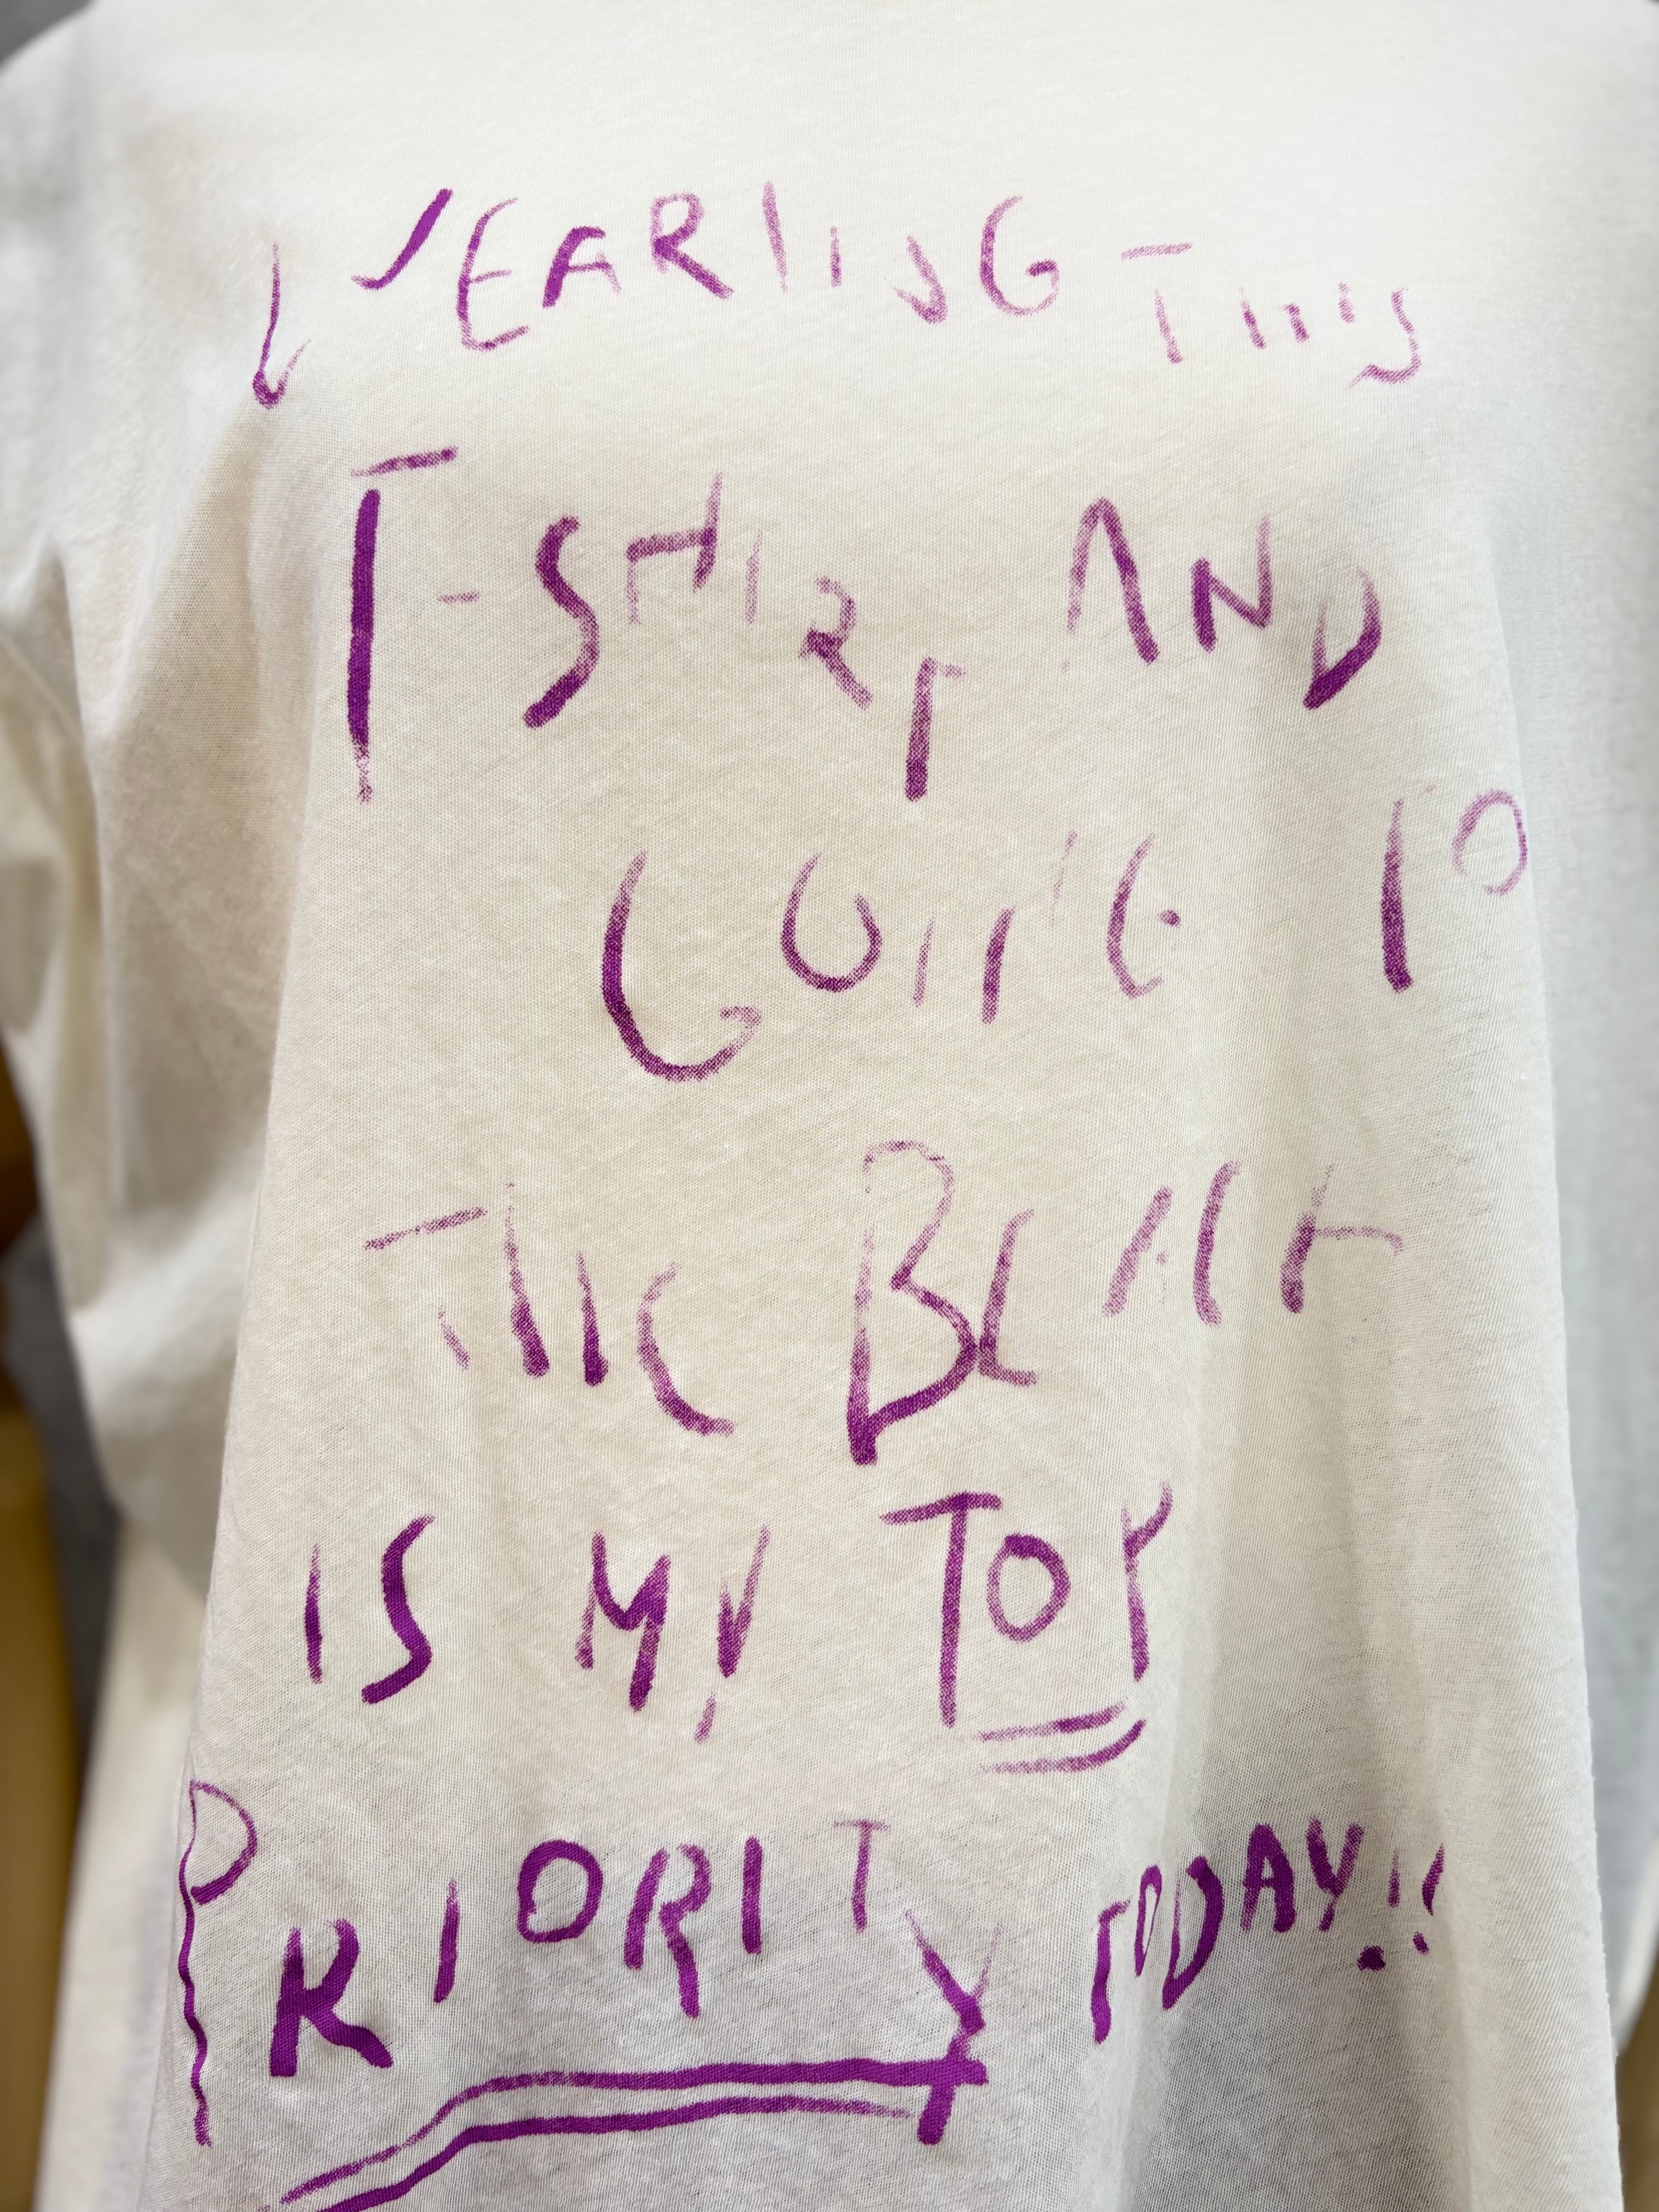 WEARING THIS
T-SHIRT AND
GOING TO
THE BEACH
IS MY TOP
PRIORITY TODAY!!